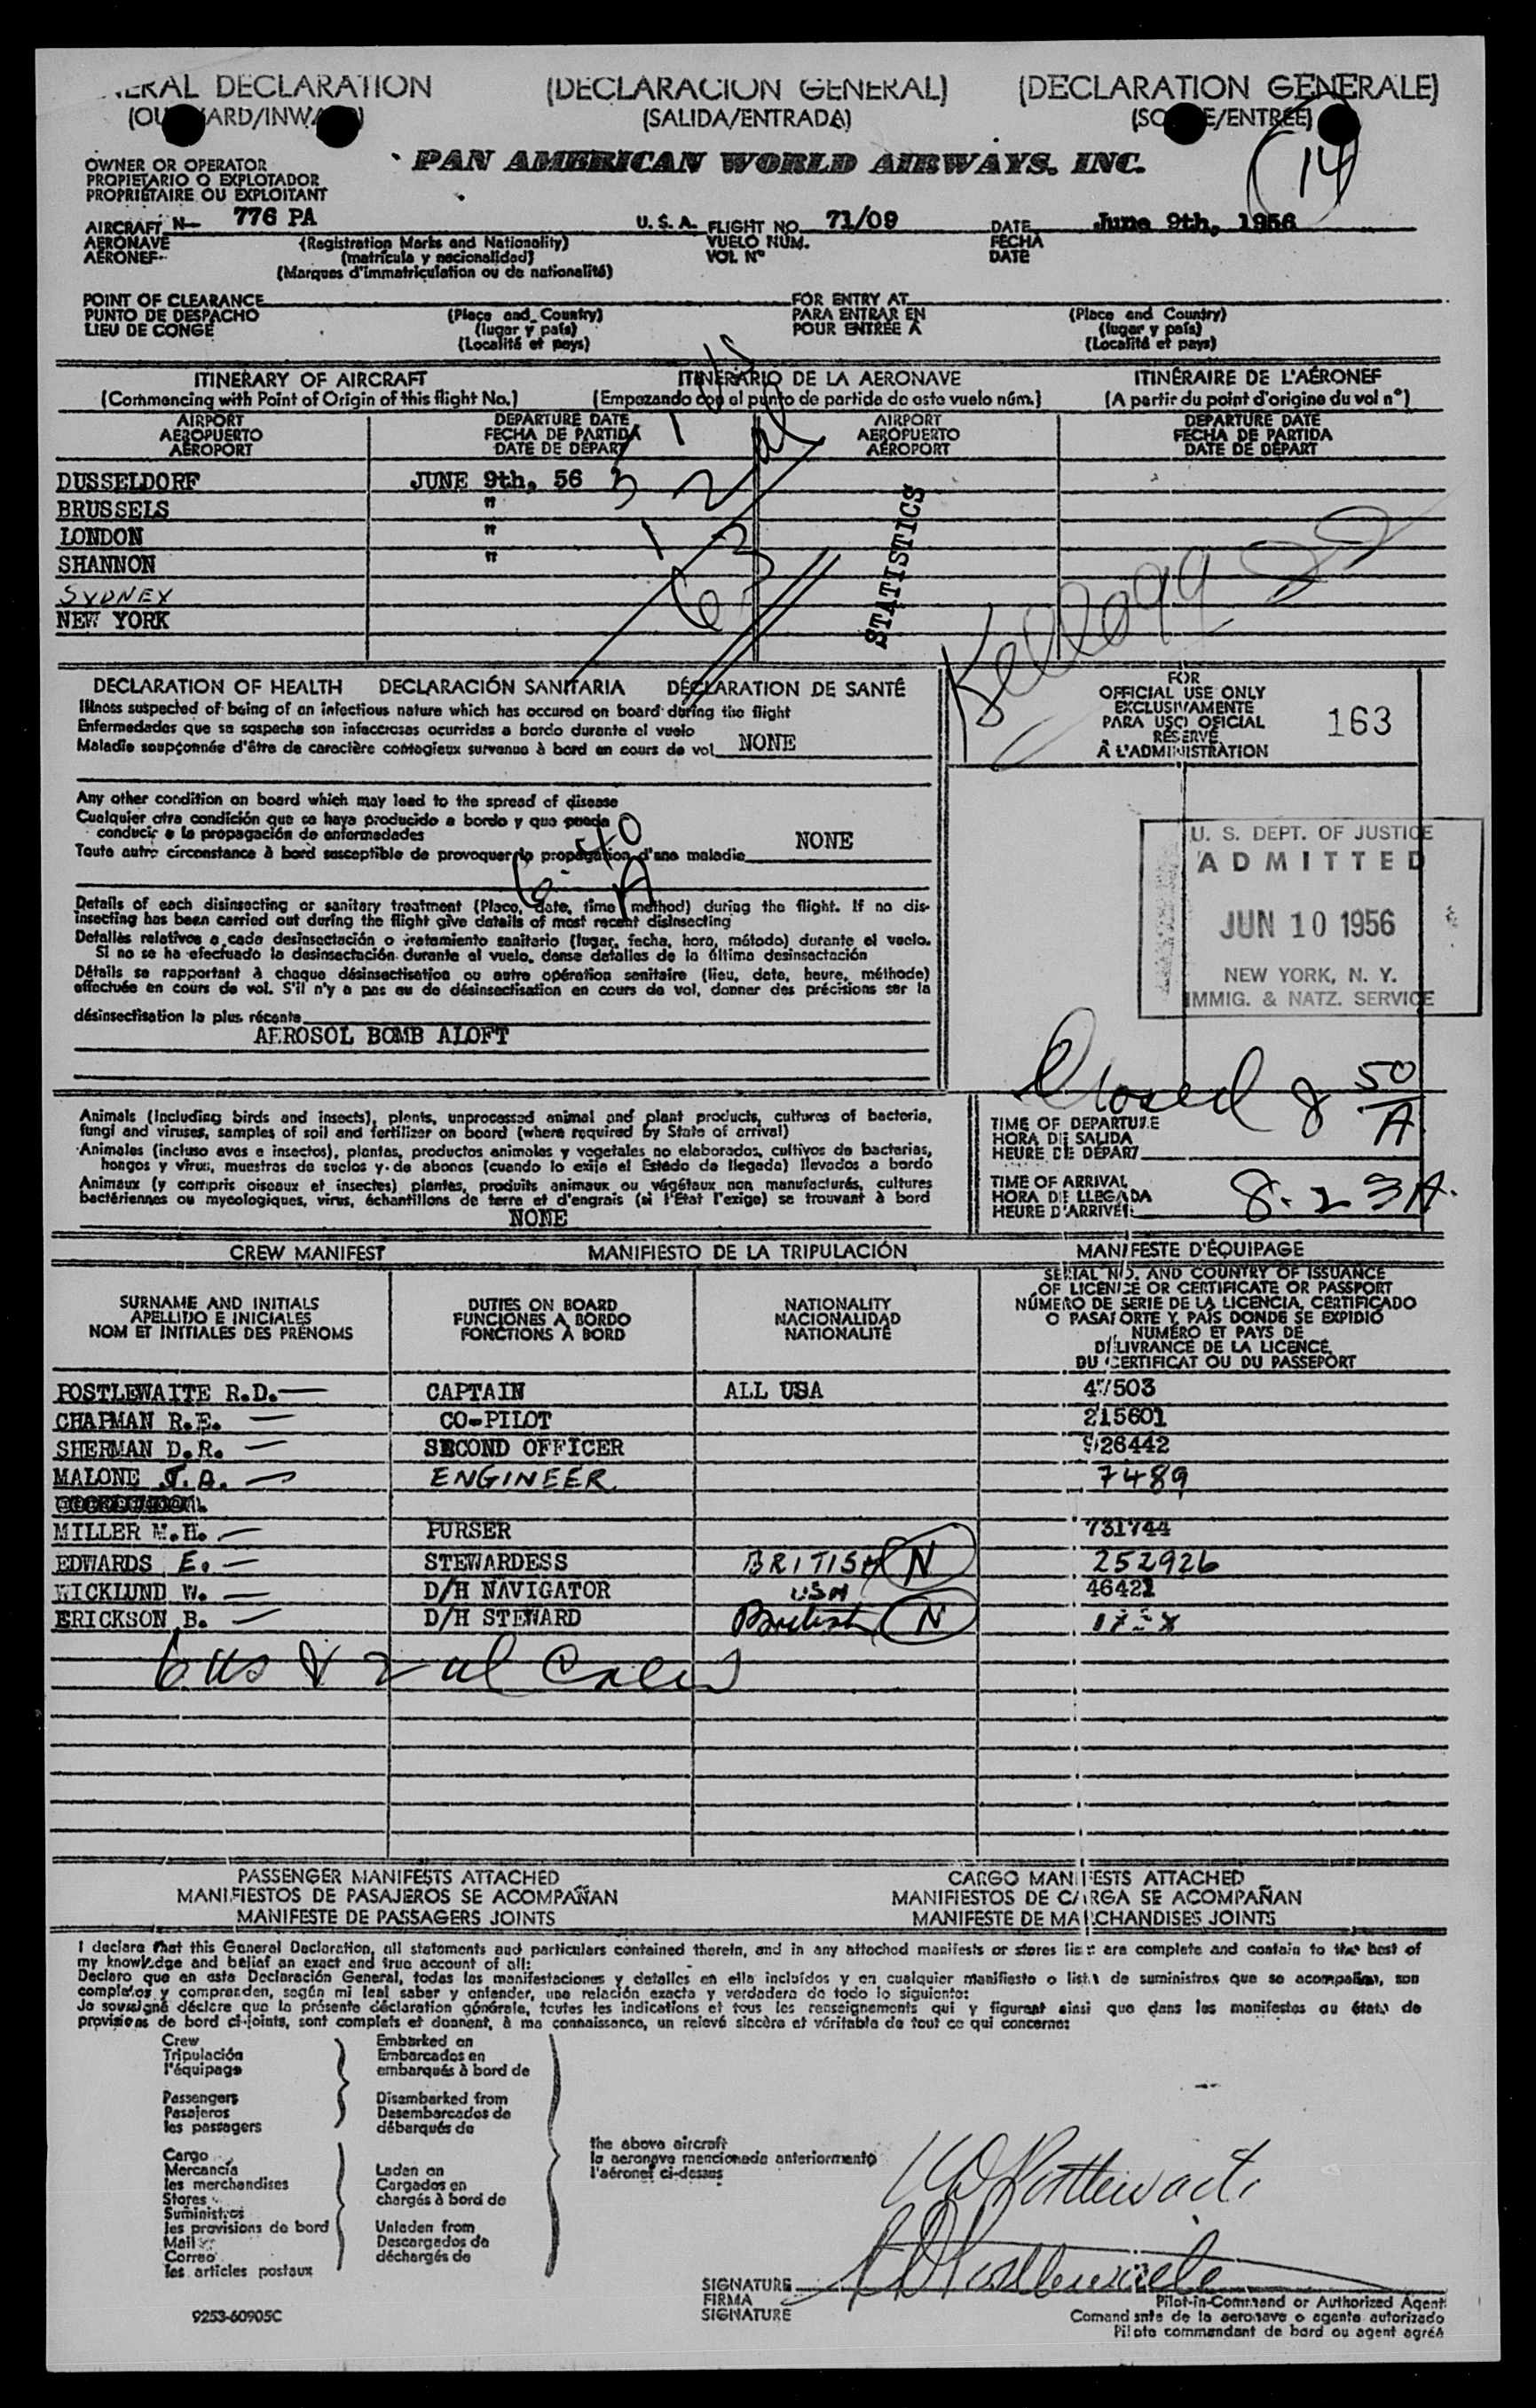 ERAL DECLARATION (DECLARACION GENERAL) (DECLARATION GENERALE)
(SALIDA/ENTRADA)
PAN AMERICAN WORLD AIRWAYS, INC.
14
OWNER OR OPERATOR
PROPIETARIO O EXPLOTADOR
PROPRIÉTAIRE OU EXPLOITANT
AIRCRAFT N- 776 PA U.S.A. FLIGHT NO. 71/09 DATE June 9th, 1956
AERONAVE (Registration Marks and Nationality) VUELO NÚM. FECHA
AÉRONEF (matrícula y nacionalidad) VOL Nº DATE
(Marques d'immatriculation ou de nationalité)
POINT OF CLEARANCE FOR ENTRY AT
PUNTO DE DESPACHO (Place and Country) PARA ENTRAR EN (Place and Country)
LIEU DE CONGÉ (lugar y país) POUR ENTRÉE À (lugar y país)
(Localité et pays) (Localité et pays)
ITINERARY OF AIRCRAFT ITINERARIO DE LA AERONAVE ITINÉRAIRE DE L'AÉRONEF
(Commencing with Point of Origin of this flight No.) (Empezando con el punto de partida de este vuelo núm.) (A partir du point d'origine du vol nº)
AIRPORT DEPARTURE DATE AIRPORT DEPARTURE DATE
AEROPUERTO FECHA DE PARTIDA AEROPUERTO FECHA DE PARTIDA
AÉROPORT DATE DE DÉPART AÉROPORT DATE DE DÉPART
DUSSELDORF JUNE 9th, 56
BRUSSELS "
LONDON "
SHANNON "
SYDNEY
NEW YORK
STATISTICS
Kellogg
DECLARATION OF HEALTH DECLARACIÓN SANITARIA DÉCLARATION DE SANTÉ
Illness suspected of being of an infectious nature which has occured on board during the flight
Enfermedades que se sospecha son infecciosas ocurridas a bordo durante el vuelo
Maladie soupçonnée d'être de caractère contagieux survenue à bord en cours de vol NONE
FOR
OFFICIAL USE ONLY
EXCLUSIVAMENTE
PARA USO OFICIAL
RÉSERVÉ
À L'ADMINISTRATION
163
Any other condition on board which may lead to the spread of disease
Cualquier otra condición que se haya producido a bordo y que pueda
conducir a la propagación de enfermedades
Toute autre circonstance à bord susceptible de provoquer la propagation d'une maladie NONE
6-40
A
U. S. DEPT. OF JUSTICE
ADMITTED
JUN 10 1956
NEW YORK, N. Y.
IMMIG. & NATZ. SERVICE
Details of each disinsecting or sanitary treatment (Place, date, time method) during the flight. If no dis-
insecting has been carried out during the flight give details of most recent disinsecting
Detalles relativos a cada desinsectación o tratamiento sanitario (lugar, fecha, hora, método) durante el vuelo.
Si no se ha efectuado la desinsectación durante el vuelo, dense detalles de la última desinsectación
Détails se rapportant à chaque désinsectisation ou autre opération sanitaire (lieu, date, heure, méthode)
effectuée en cours de vol. S'il n'y a pas eu de désinsectisation en cours de vol, donner des précisions sur la
désinsectisation la plus récente
AEROSOL BOMB ALOFT
Closed 8 50/A
Animals (including birds and insects), plants, unprocessed animal and plant products, cultures of bacteria,
fungi and viruses, samples of soil and fertilizer on board (where required by State of arrival)
Animales (incluso aves e insectos), plantas, productos animales y vegetales no elaborados, cultivos de bacterias,
hongos y virus, muestras de suelos y de abonos (cuando lo exija el Estado de llegada) llevados a bordo
Animaux (y compris oiseaux et insectes) plantes, produits animaux ou végétaux non manufacturés, cultures
bactériennes ou mycologiques, virus, échantillons de terre et d'engrais (si l'État l'exige) se trouvant à bord
NONE
TIME OF DEPARTURE
HORA DE SALIDA
HEURE DE DÉPART
TIME OF ARRIVAL
HORA DE LLEGADA
HEURE D'ARRIVÉE 8-23A.
CREW MANIFEST MANIFIESTO DE LA TRIPULACIÓN MANIFESTE D'ÉQUIPAGE
SURNAME AND INITIALS
APELLIDO E INICIALES
NOM ET INITIALES DES PRÉNOMS
DUTIES ON BOARD
FUNCIONES A BORDO
FONCTIONS À BORD
NATIONALITY
NACIONALIDAD
NATIONALITÉ
SERIAL NO. AND COUNTRY OF ISSUANCE
OF LICENCE OR CERTIFICATE OR PASSPORT
NÚMERO DE SERIE DE LA LICENCIA, CERTIFICADO
O PASAPORTE Y PAÍS DONDE SE EXPIDIÓ
NUMÉRO ET PAYS DE
DÉLIVRANCE DE LA LICENCE,
DU CERTIFICAT OU DU PASSEPORT
POSTLEWAITE R.D. CAPTAIN ALL USA 47503
CHAPMAN R.E. CO-PILOT 215601
SHERMAN D.R. SECOND OFFICER 926442
MALONE J.A. ENGINEER 7489
MILLER M.H. PURSER 731744
EDWARDS E. STEWARDESS BRITISH N 252926
WICKLUND W. D/H NAVIGATOR USA 46421
ERICKSON B. D/H STEWARD British N
6 us & 2 al Crew
PASSENGER MANIFESTS ATTACHED CARGO MANIFESTS ATTACHED
MANIFIESTOS DE PASAJEROS SE ACOMPAÑAN MANIFIESTOS DE CARGA SE ACOMPAÑAN
MANIFESTE DE PASSAGERS JOINTS MANIFESTE DE MARCHANDISES JOINTS
I declare that this General Declaration, all statements and particulars contained therein, and in any attached manifests or stores lists are complete and contain to the best of
my knowledge and belief an exact and true account of all:
Declaro que en esta Declaración General, todas las manifestaciones y detalles en ella incluídos y en cualquier manifiesto o lista de suministros que se acompañan, son
completos y comprenden, según mi leal saber y entender, una relación exacta y verdadera de todo lo siguiente:
Je soussigné déclare que la présente déclaration générale, toutes les indications et tous les renseignements qui y figurent ainsi que dans les manifestes ou états de
provisions de bord ci-joints, sont complets et donnent, à ma connaissance, un relevé sincère et véritable de tout ce qui concerne:
Crew Embarked on
Tripulación Embarcados en
l'équipage embarqués à bord de
Passengers Disembarked from
Pasajeros Desembarcados de
les passagers débarqués de
the above aircraft
la aeronave mencionada anteriormente
l'aéronef ci-dessus
Cargo
Mercancía Laden on
les merchandises Cargados en
Stores chargés à bord de
Suministros
les provisions de bord Unladen from
Mail Descargados de
Correo déchargés de
les articles postaux
RD Postlewaite
RD Postlewaite
SIGNATURE
FIRMA
SIGNATURE
Pilot-in-Command or Authorized Agent
Comandante de la aeronave o agente autorizado
Pilote commandant de bord ou agent agréé
9253-60905C